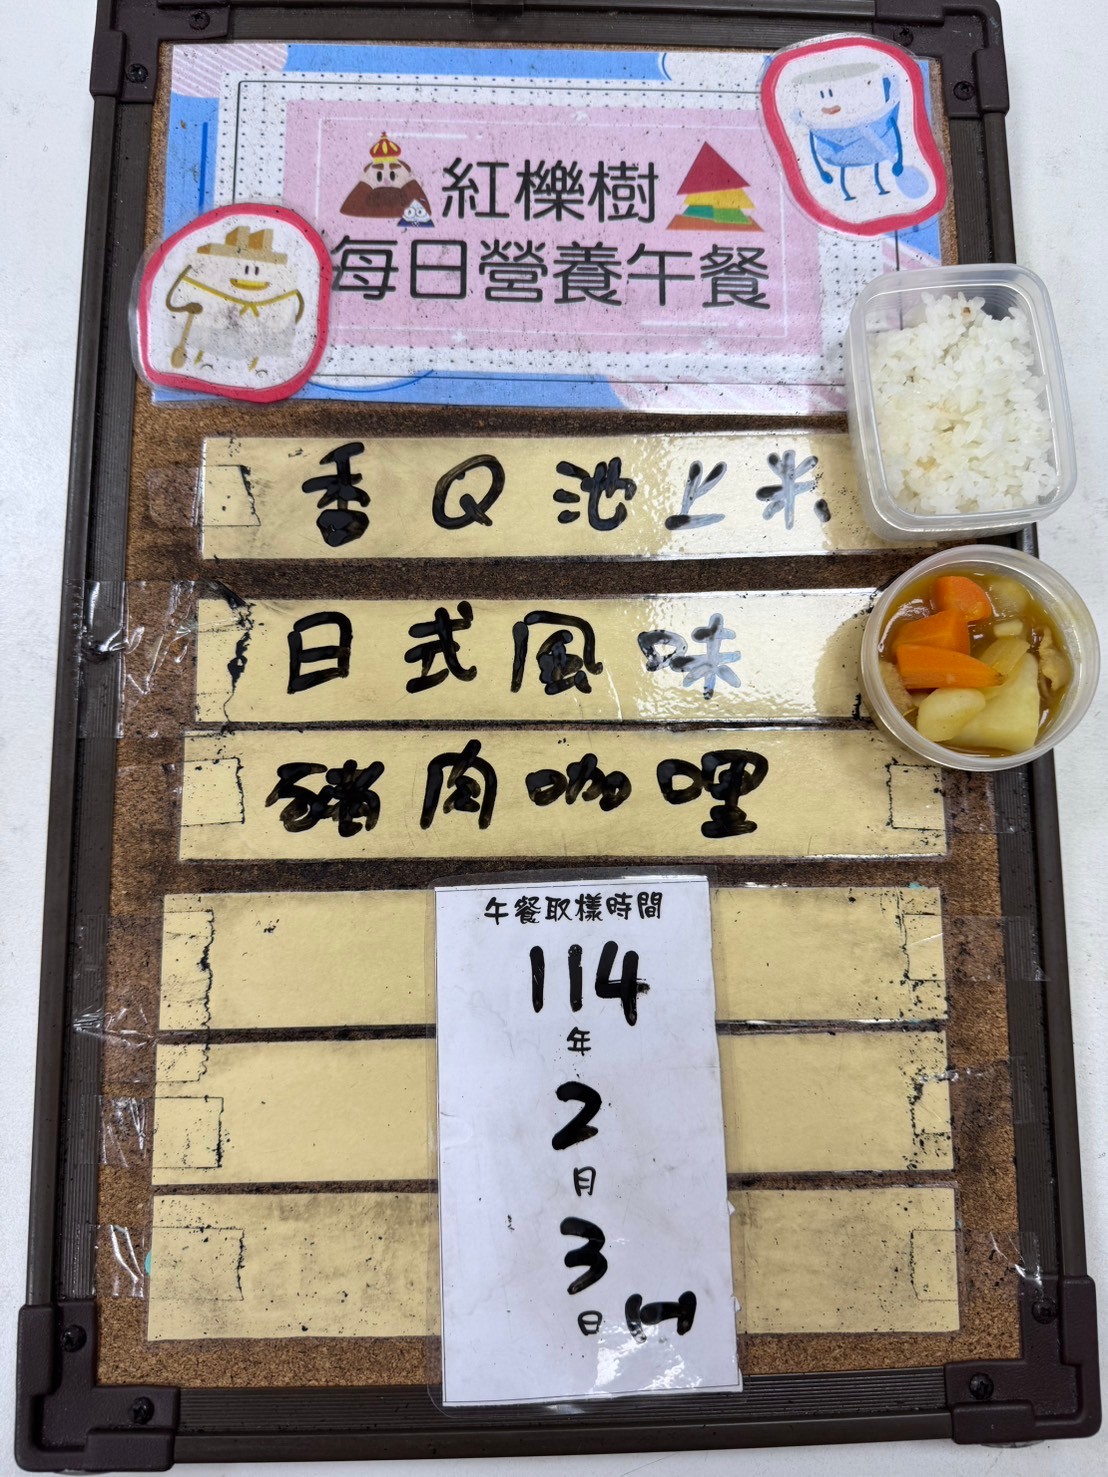 紅櫟樹
每日營養午餐
香Q池上米
日式風味
豬肉咖哩
午餐取樣時間
114
年
2
月
3
日